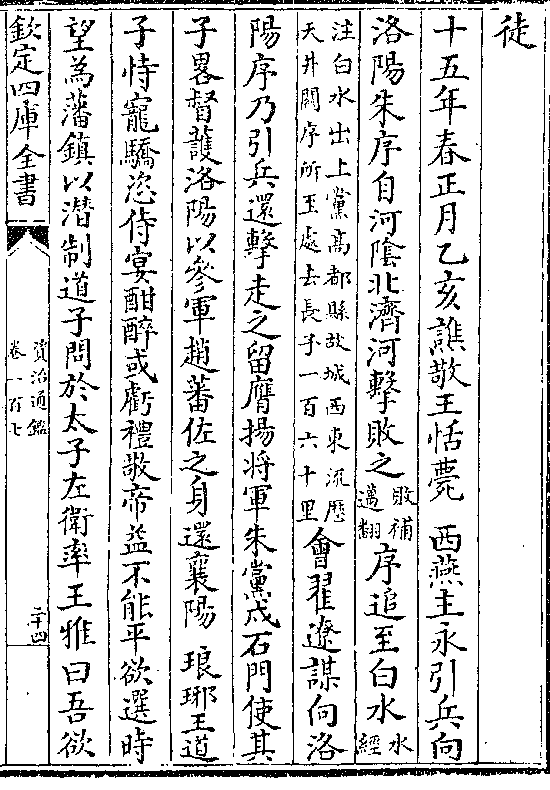 徒
十五年春正月乙亥譙敬王恬薨　西燕主永引兵向
洛陽朱序自河隂北濟河擊敗之敗補邁翻序追至白水水經
注白水出上黨高都縣故城西東流歷
天井關序所至處去長子一百六十里會翟遼謀向洛
陽序乃引兵還擊走之留鷹揚将軍朱黨戍石門使其
子畧督䕶洛陽以參軍趙蕃佐之身還襄陽　琅琊王道
子恃寵驕恣侍宴酣醉或虧禮敬帝益不能平欲選時
望為藩鎮以潜制道子問於太子左衛率王雅曰吾欲
欽定四庫全書
資治通鑑
卷一百七
二十四